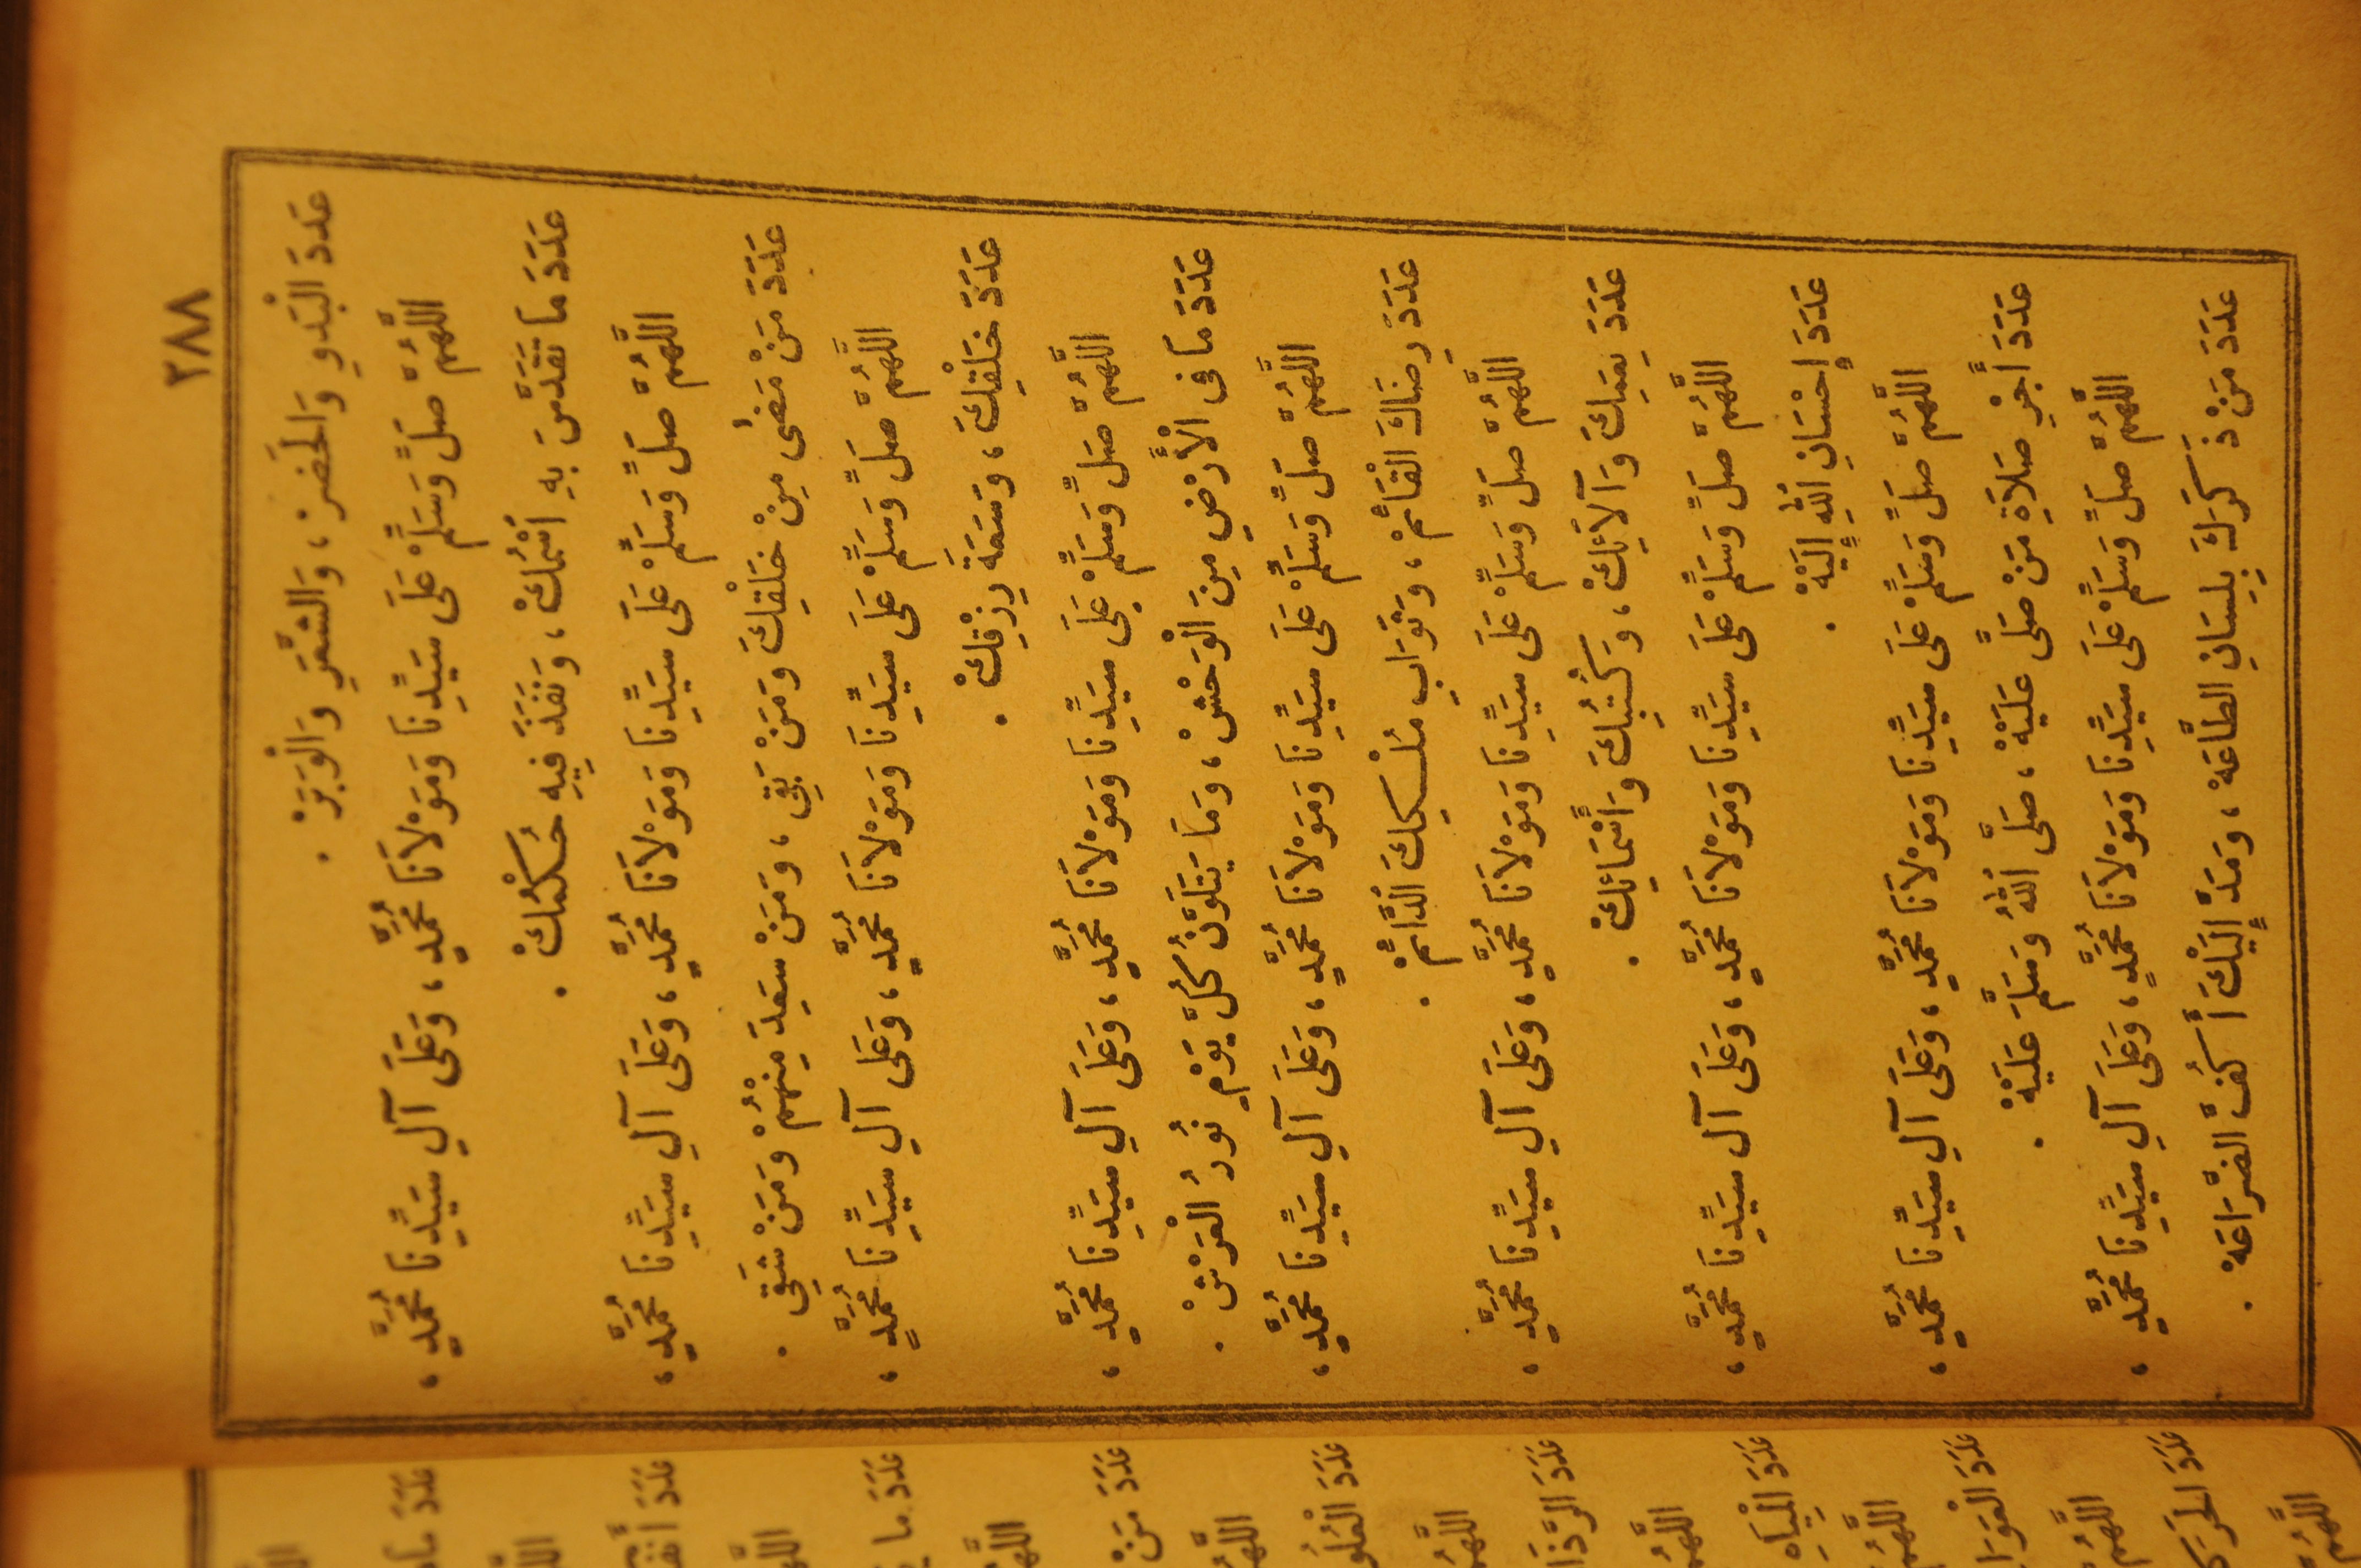 ٢٨٨
عَدَدَ الْبَدْوِ وَالْحَضَرْ، وَالشَّعَرِ وَالْوَبَرْ.
اللَّهُمَّ صَلِّ وَسَلِّمْ عَلَى سَيِّدِنَا وَمَوْلَانَا مُحَمَّدٍ، وَعَلَى آلِ سَيِّدِنَا مُحَمَّدٍ،
عَدَدَ مَا تَقَدَّسَ بِهِ اسْمُكْ، وَنَفَذَ فِيهِ حُكْمُكْ.
اللَّهُمَّ صَلِّ وَسَلِّمْ عَلَى سَيِّدِنَا وَمَوْلَانَا مُحَمَّدٍ، وَعَلَى آلِ سَيِّدِنَا مُحَمَّدٍ،
عَدَدَ مَنْ مَضَى مِنْ خَلْقِكَ وَمَنْ بَقِى، وَمَنْ سَعِدَ مِنْهُمْ وَمَنْ شَقِى.
اللَّهُمَّ صَلِّ وَسَلِّمْ عَلَى سَيِّدِنَا وَمَوْلَانَا مُحَمَّدٍ، وَعَلَى آلِ سَيِّدِنَا مُحَمَّدٍ،
عَدَدَ خَلْقِكَ، وَسَعَةَ رِزْقِكْ.
اللَّهُمَّ صَلِّ وَسَلِّمْ عَلَى سَيِّدِنَا وَمَوْلَانَا مُحَمَّدٍ، وَعَلَى آلِ سَيِّدِنَا مُحَمَّدٍ،
عَدَدَ مَا فِى الْأَرْضِ مِنَ الْوَحْشْ، وَمَا يَتَلَوَّنُ كُلَّ يَوْمٍ نُورُ الْعَرْشْ.
اللَّهُمَّ صَلِّ وَسَلِّمْ عَلَى سَيِّدِنَا وَمَوْلَانَا مُحَمَّدٍ، وَعَلَى آلِ سَيِّدِنَا مُحَمَّدٍ،
عَدَدَ رِضَاكَ الْقَائِمْ، وَثَوَابِ مُلْكِكَ الدَّائِمْ.
اللَّهُمَّ صَلِّ وَسَلِّمْ عَلَى سَيِّدِنَا وَمَوْلَانَا مُحَمَّدٍ، وَعَلَى آلِ سَيِّدِنَا مُحَمَّدٍ،
عَدَدَ نِعَمِكَ وَآلَائِكْ، وَكُتُبِكَ وَأَسْمَائِكْ.
اللَّهُمَّ صَلِّ وَسَلِّمْ عَلَى سَيِّدِنَا وَمَوْلَانَا مُحَمَّدٍ، وَعَلَى آلِ سَيِّدِنَا مُحَمَّدٍ،
عَدَدَ إِحْسَانِ اللهِ إِلَيْهْ.
اللَّهُمَّ صَلِّ وَسَلِّمْ عَلَى سَيِّدِنَا وَمَوْلَانَا مُحَمَّدٍ، وَعَلَى آلِ سَيِّدِنَا مُحَمَّدٍ،
عَدَدَ أَجْرِ صَلَاةِ مَنْ صَلَّى عَلَيْهْ، صَلَّى اللهُ وَسَلَّمَ عَلَيْهْ.
اللَّهُمَّ صَلِّ وَسَلِّمْ عَلَى سَيِّدِنَا وَمَوْلَانَا مُحَمَّدٍ، وَعَلَى آلِ سَيِّدِنَا مُحَمَّدٍ،
عَدَدَ مَنْ ذَكَرَكَ بِلِسَانِ الطَّاعَهْ، وَمَدَّ إِلَيْكَ أَكُفَّ الضَّرَاعَهْ.
عَدَدَ
عَدَدَ
عَدَدَ مَا
عَدَدَ مَنْ
اللَّهُمَّ
عَدَدَ
اللَّهُمَّ
عَدَدَ
اللَّهُمَّ
عَدَدَ الْمِيَاهِ
اللَّهُمَّ
عَدَدَ
اللَّهُمَّ
عَدَدَ
اللَّهُمَّ